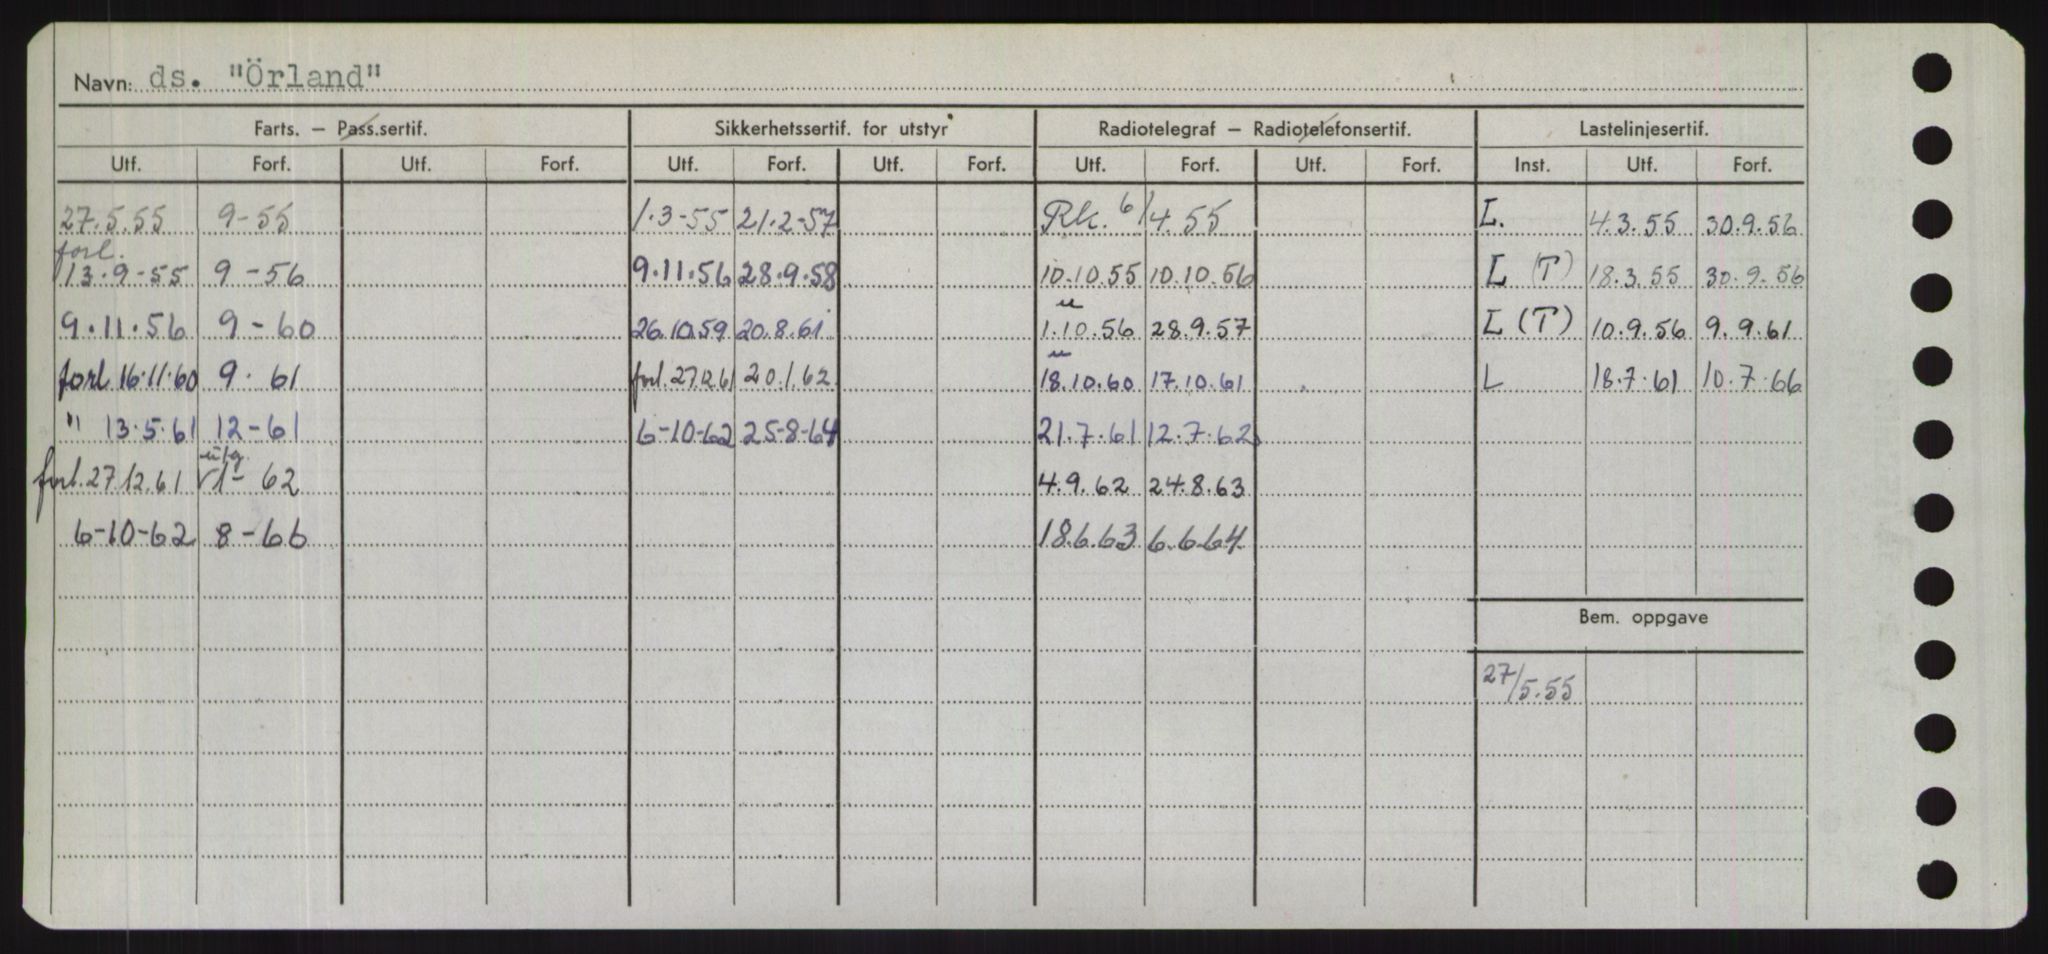 Navn: ds. "Örland"
Farts. – Pass.sertif. Sikkerhetssertif. for utstyr Radiotelegraf – Radiotelefonsertif. Lastelinjesertif.
Utf. Forf. Utf. Forf. Utf. Forf. Utf. Forf. Utf. Forf. Utf. Forf. Inst. Utf. Forf.
27.5.55 9-55 1.3-55 21.2-57 Rk. 6/4.55 L. 4.3.55 30.9.56
forl.
13.9-55 9-56 9.11.56 28.9.58 10.10.55 10.10.56 L (T) 18.3.55 30.9.56
u
9.11.56 9-60 26.10.59 20.8.61 1.10.56 28.9.57 L (T) 10.9.56 9.9.61
u
forl 16.11.60 9.61 forl. 27.12.61 20.1.62 18.10.60 17.10.61 L 18.7.61 10.7.66
" 13.5.61 12-61 6-10-62 25-8-64 21.7.61 12.7.62
utg.
forl. 27.12.61 1-62 4.9.62 24.8.63
6-10-62 8-66 18.6.63 6.6.64
Bem. oppgave
27/5.55